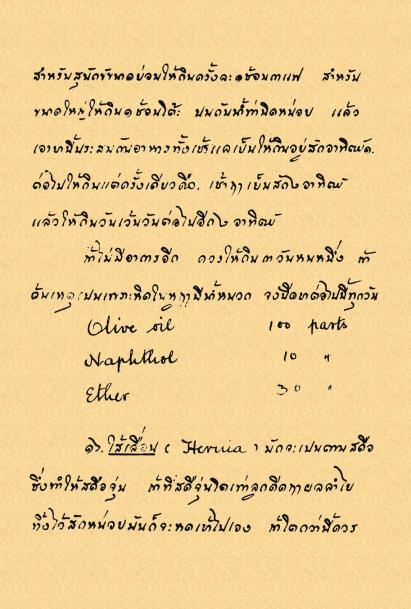 สำหรับสุนัขขนาดย่อมให้กินครั้งละ๑ช้อนกาแฟ สำหรับ
ขนาดใหญ่ให้กิน๑ช้อนโต๊ะ ปนกับน้ำท่านิดหน่อย แล้ว
เอายานี้ประสมกับอาหารทั้งเช้าแลเย็นให้กินอยู่สักอาทิตย์๑.
ต่อไปให้กินแต่ครั้งเดียวคือ. เช้าฤาเย็นสัก๖อาทิตย์
แล้วให้กินวันเว้นวันต่อไปอีก๖อาทิตย์
ถ้าไม่มีอาการอีก ควรให้กิน๓วันหนหนึ่ง ถ้า
คันเหตุเปนเพราะหิดในหูฤามีน้ำหนวก จงฉีดยาต่อไปนี้ทุกวัน
Olive oil 100 parts
Naphthol 10 〃
Ether 30 〃
๑๖. ไส้เลื่อน ( Hernia ) มักจะเปนตามสดือ
ซึ่งทำให้สดือจุ่น ถ้าที่สดือจุ่นโตเท่าลูกดีดฤาผลลำไย
ทิ้งไว้สักหน่อยมันก็จะหดเข้าไปเอง ถ้าโตกว่านี้ควร